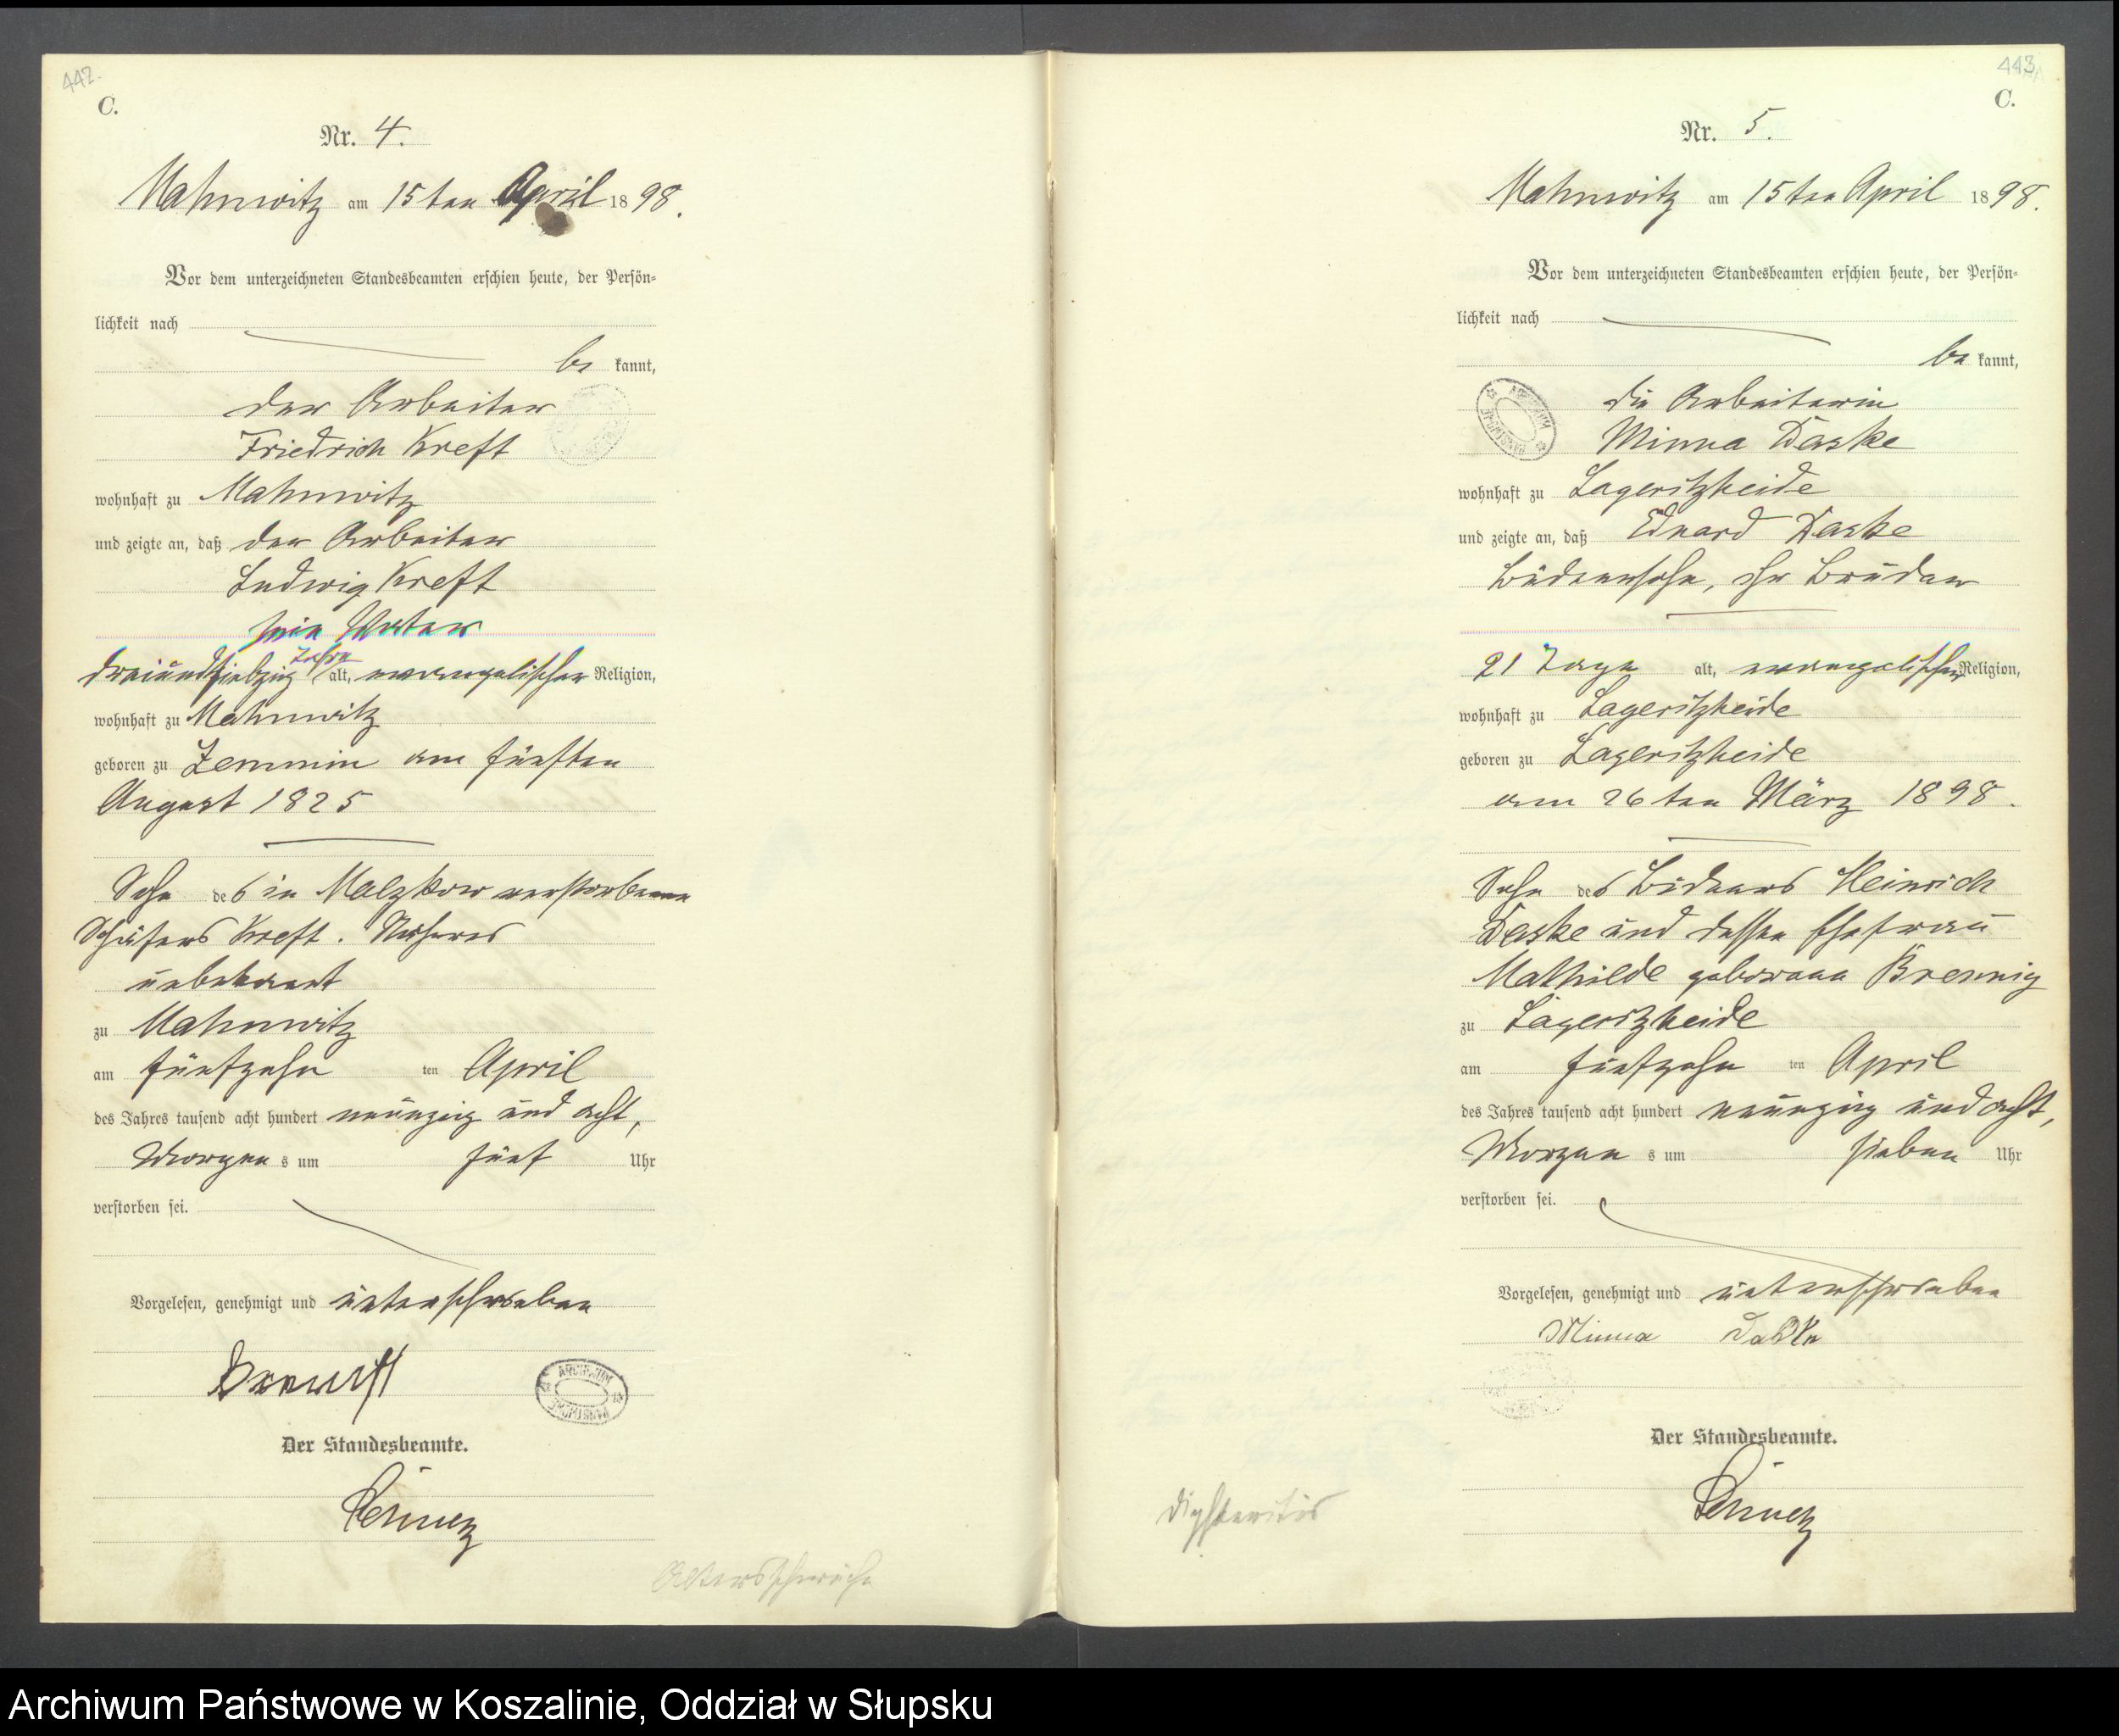 442.
C.
Nr. 4.
Mahnwitz am 15ten April 1898.
Vor dem unterzeichneten Standesbeamten erschien heute, der Persön-
lichkeit nach
be kannt,
der Arbeiter
Friedrich Kreft
wohnhaft zu Mahnwitz
und zeigte an, daß der Arbeiter
Ludwig Kreft
sein Vater
dreiundsiebzig Jahre alt, evangelischer Religion,
wohnhaft zu Mahnwitz
geboren zu Zemmin am fünften
August 1825
Sohn des in Malzkow verstorbenen
Schäfers Kreft. Näheres
unbekannt
zu Mahnwitz
am fünfzehn ten April
des Jahres tausend acht hundert neunzig und acht,
Morgen s um fünf Uhr
verstorben sei.
Vorgelesen, genehmigt und unterschrieben
ARCHIWUM
Der Standesbeamte.
Altersschwäche
443
C.
Nr. 5.
Mahnwitz am 15ten April 1898.
Vor dem unterzeichneten Standesbeamten erschien heute, der Persön-
lichkeit nach
be kannt,
die Arbeiterin
Minna Daske
wohnhaft zu Lageritzheide
und zeigte an, daß Eduard Daske
Büdnersohn, ihr Bruder
21 Tage alt, evangelischer Religion,
wohnhaft zu Lageritzheide
geboren zu Lageritzheide
am 26ten März 1898.
Sohn des Büdners Heinrich
Daske und dessen Ehefrau
Mathilde geborene Brennig
zu Lageritzheide
am fünfzehn ten April
des Jahres tausend acht hundert neunzig und acht,
Morgen s um sieben Uhr
verstorben sei.
Vorgelesen, genehmigt und unterschrieben
Minna Daske
Der Standesbeamte.
Diphteritis
Archiwum Państwowe w Koszalinie, Oddział w Słupsku